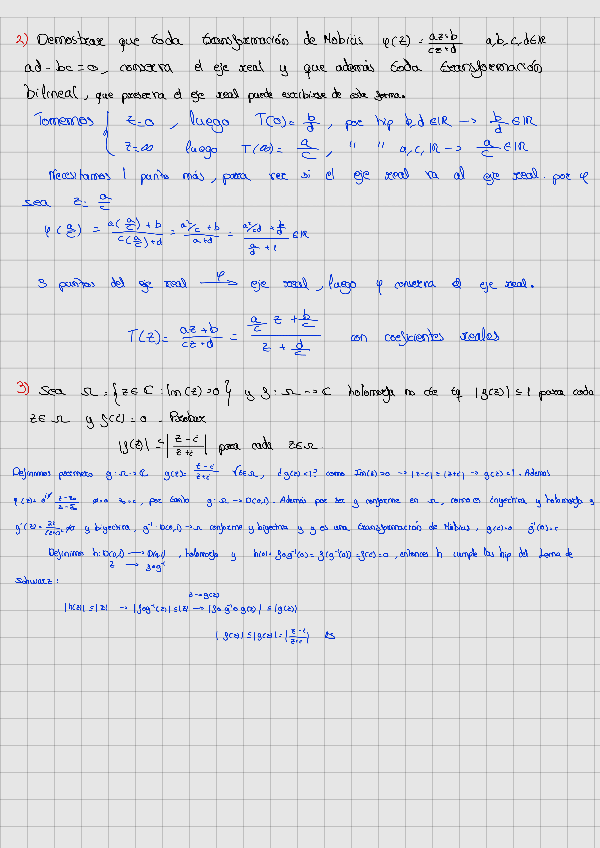 2) Demostrar que toda transformación de Mobius φ(z) = (az+b)/(cz+d) a,b,c,d∈ℝ
ad-bc=0, conserva el eje real y que además toda transformación
bilineal, que preserva el eje real puede escribirse de esta forma.
Tomemos { z=0 , luego T(0)= b/d , por hip b,d∈ℝ → b/d ∈ℝ
z=∞ luego T(∞)= a/c , " " a,c,ℝ → a/c ∈ℝ
Necesitamos 1 punto más, para ver si el eje real va al eje real. por φ
sea z= a/c
φ(a/c) = (a(a/c)+b)/(c(a/c)+d) = (a²/c+b)/(a+d) = (a²/cd + b/d)/(a/d + 1) ∈ℝ
3 puntos del eje real →φ eje real, luego φ conserva el eje real.
T(z)= (az+b)/(cz+d) = (a/c z + b/c)/(z + d/c) con coeficientes reales
3) Sea Ω={z∈ℂ: Im(z)>0} y f:Ω→ℂ holomorfa no cte tq |f(z)|≤1 para cada
z∈Ω y f(i)=0. Probar
|f(z)| ≤ |(z-i)/(z+i)| para cada z∈Ω.
Definimos primero g:Ω→ℂ g(z)= (z-i)/(z+i) ∀z∈Ω, ¿g(z)<1? como Im(z)>0 → |z-i|<|z+i| → g(z)<1. Además
por tanto g:Ω→D(0,1). Además por ser g conforme en Ω, como es inyectiva y holomorfa y
y biyectiva, g⁻¹:D(0,1)→Ω conforme y biyectiva y g es una transformación de Mobius, g(i)=0 g⁻¹(0)=i
Definimos h:D(0,1)→D(0,1) , holomorfa y h(0)=f∘g⁻¹(0)=f(g⁻¹(0))=f(i)=0, entonces h cumple las hip del Lema de
z → f∘g⁻¹
Schwarz:
z→g(z)
|h(z)|≤|z| → |f∘g⁻¹(z)|≤|z| → |f∘g⁻¹∘g(z)| ≤ |g(z)|
|f(z)| ≤ |g(z)| = |(z-i)/(z+i)|